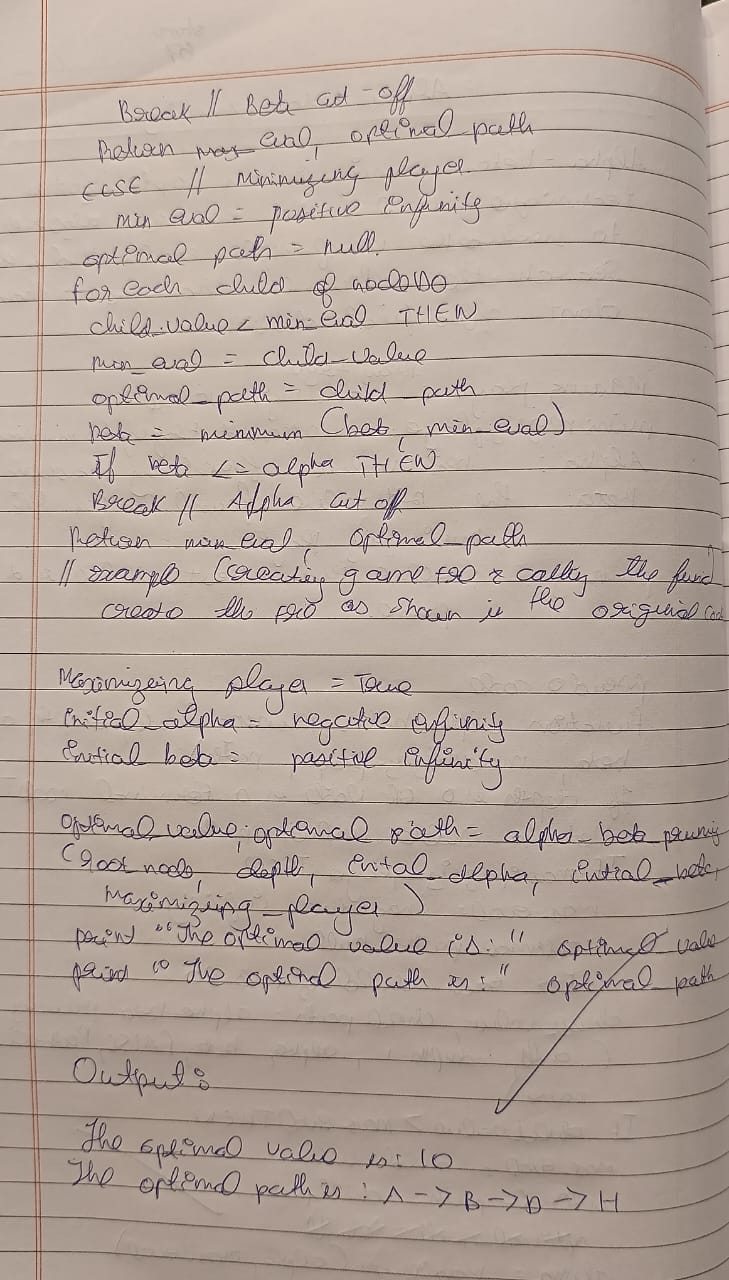 Break // Beta cut-off
Return max eval, optimal path
ELSE // Minimizing player
min eval = positive infinity
optimal path = null.
for each child of node DO
child.value < min_eval THEN
min_eval = child_value
optimal_path = child path
beta = minimum (beta, min_eval)
If beta <= alpha THEN
Break // Alpha cut off
Return min eval, optimal_path
// example (creating game tree & calling the func
create the tree as shown in the original code
Maximizeing player = True
initial_alpha = negative infinity
initial beta = positive infinity
optimal value, optimal path = alpha_beta pruning
(root node, depth, inital_alpha, initial_beta,
Maximizing_player)
print "The optimal value is:" optimal value
print "The optimal path is:" optimal path
Output:
The optimal value is: 10
The optimal path is: A -> B -> D -> H